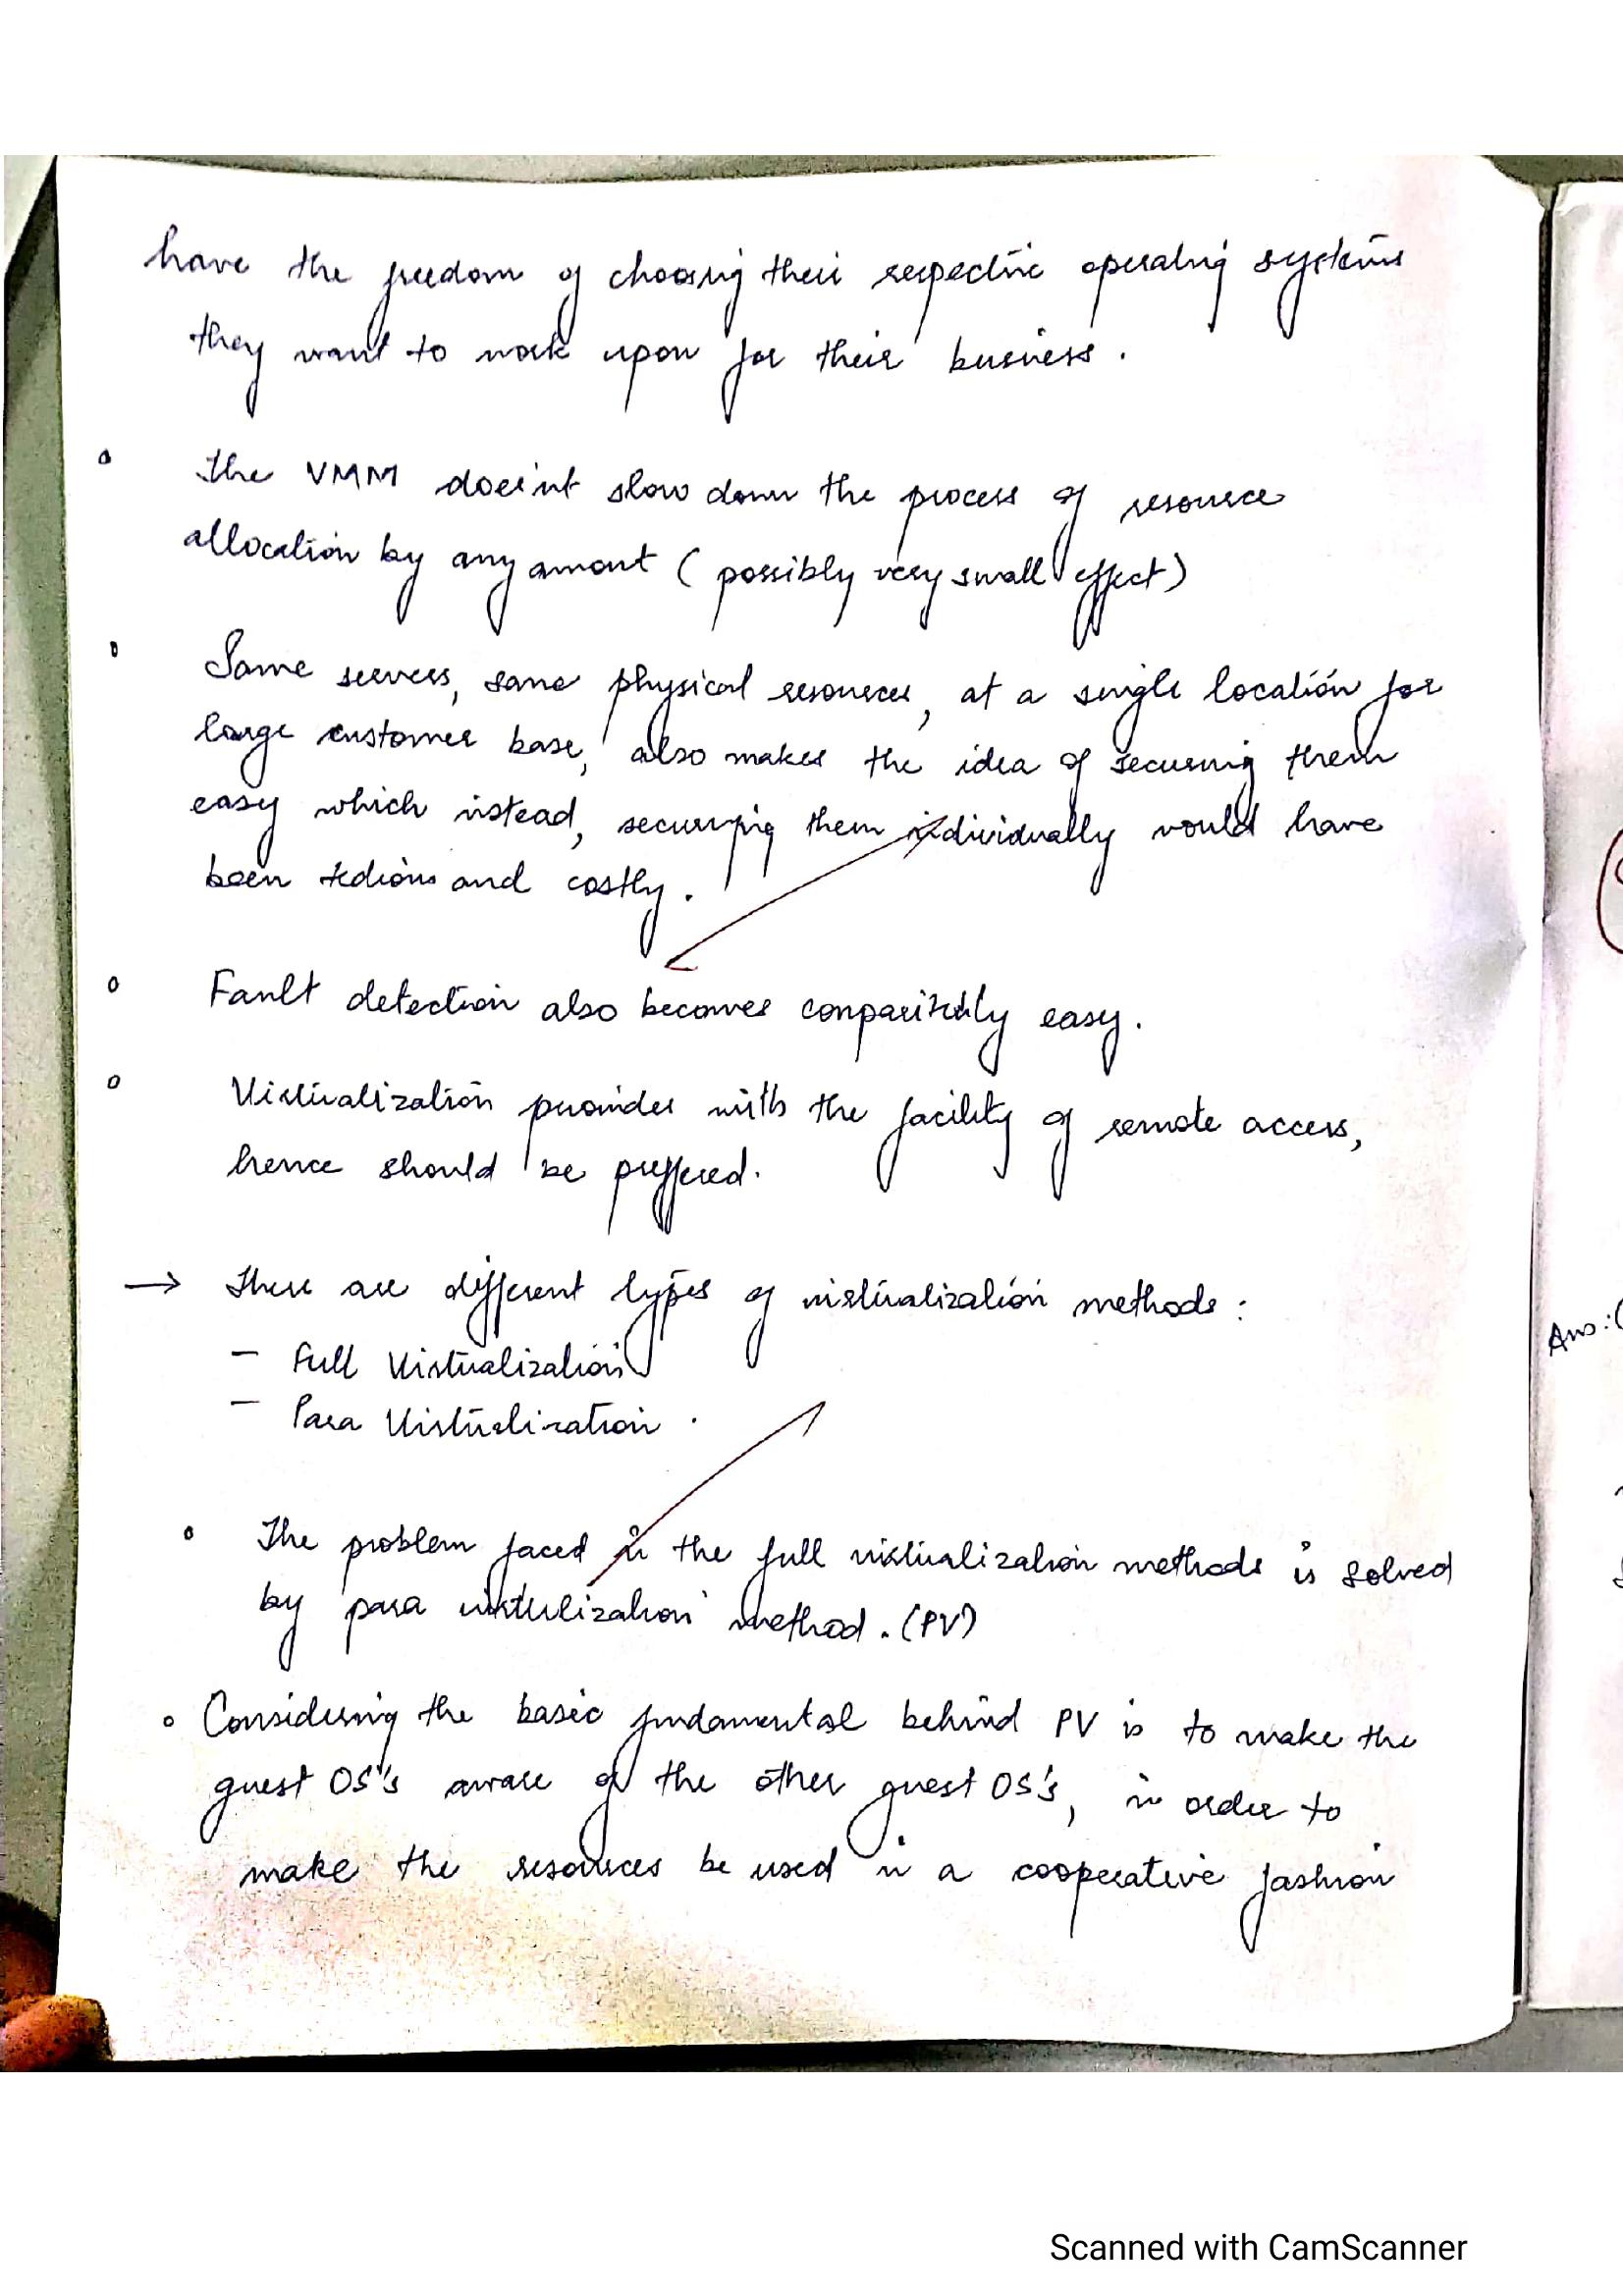 have the freedom of choosing their respective operating systems
they want to work upon for their business.
The VMM doesn't slow down the process of resource
allocation by any amount (possibly very small effect)
Same servers, same physical resources, at a single location for
large customer base, also makes the idea of securing them
easy which instead, securing them individually would have
been tedious and costly.
Fault detection also becomes easy.
Virtualization provides with the facility of remote access,
hence should be preffered.
→ There are different types of virtualization methods:
- Full Virtualization
- Para Virtulization.
The problem faced in the full virtualization methods is solved
by para virtulization method. (PV)
Considering the basic fundamental behind PV is to make the
guest OS's aware of the other guest OS's, in order to
make the resources be used in a cooperative fashion
Ans:(
Scanned with CamScanner